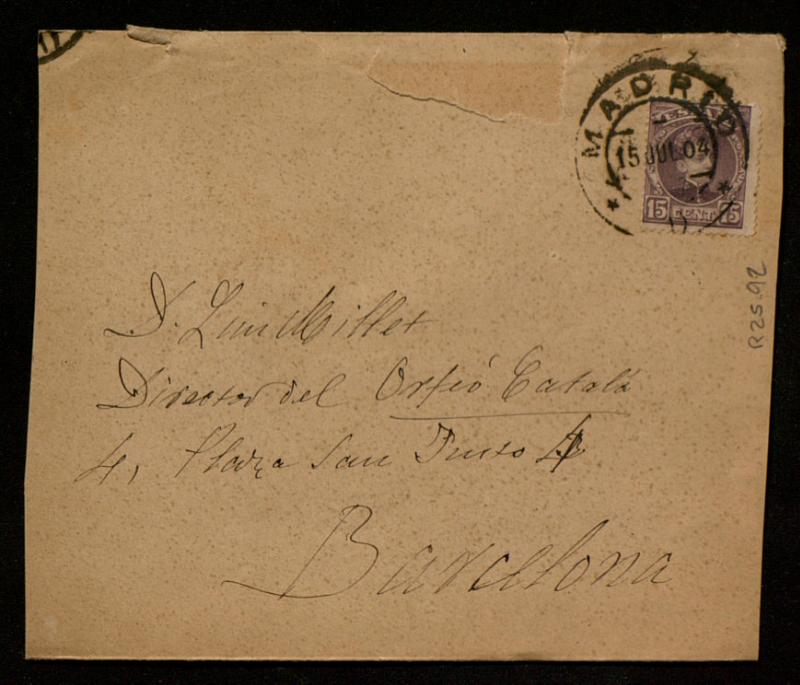 MADRID
15 JUL.04
15 CENT.S 15
D. Luis Millet
Director del Orfeó Català
4, Plaza San Justo 4
Barcelona
R25.92